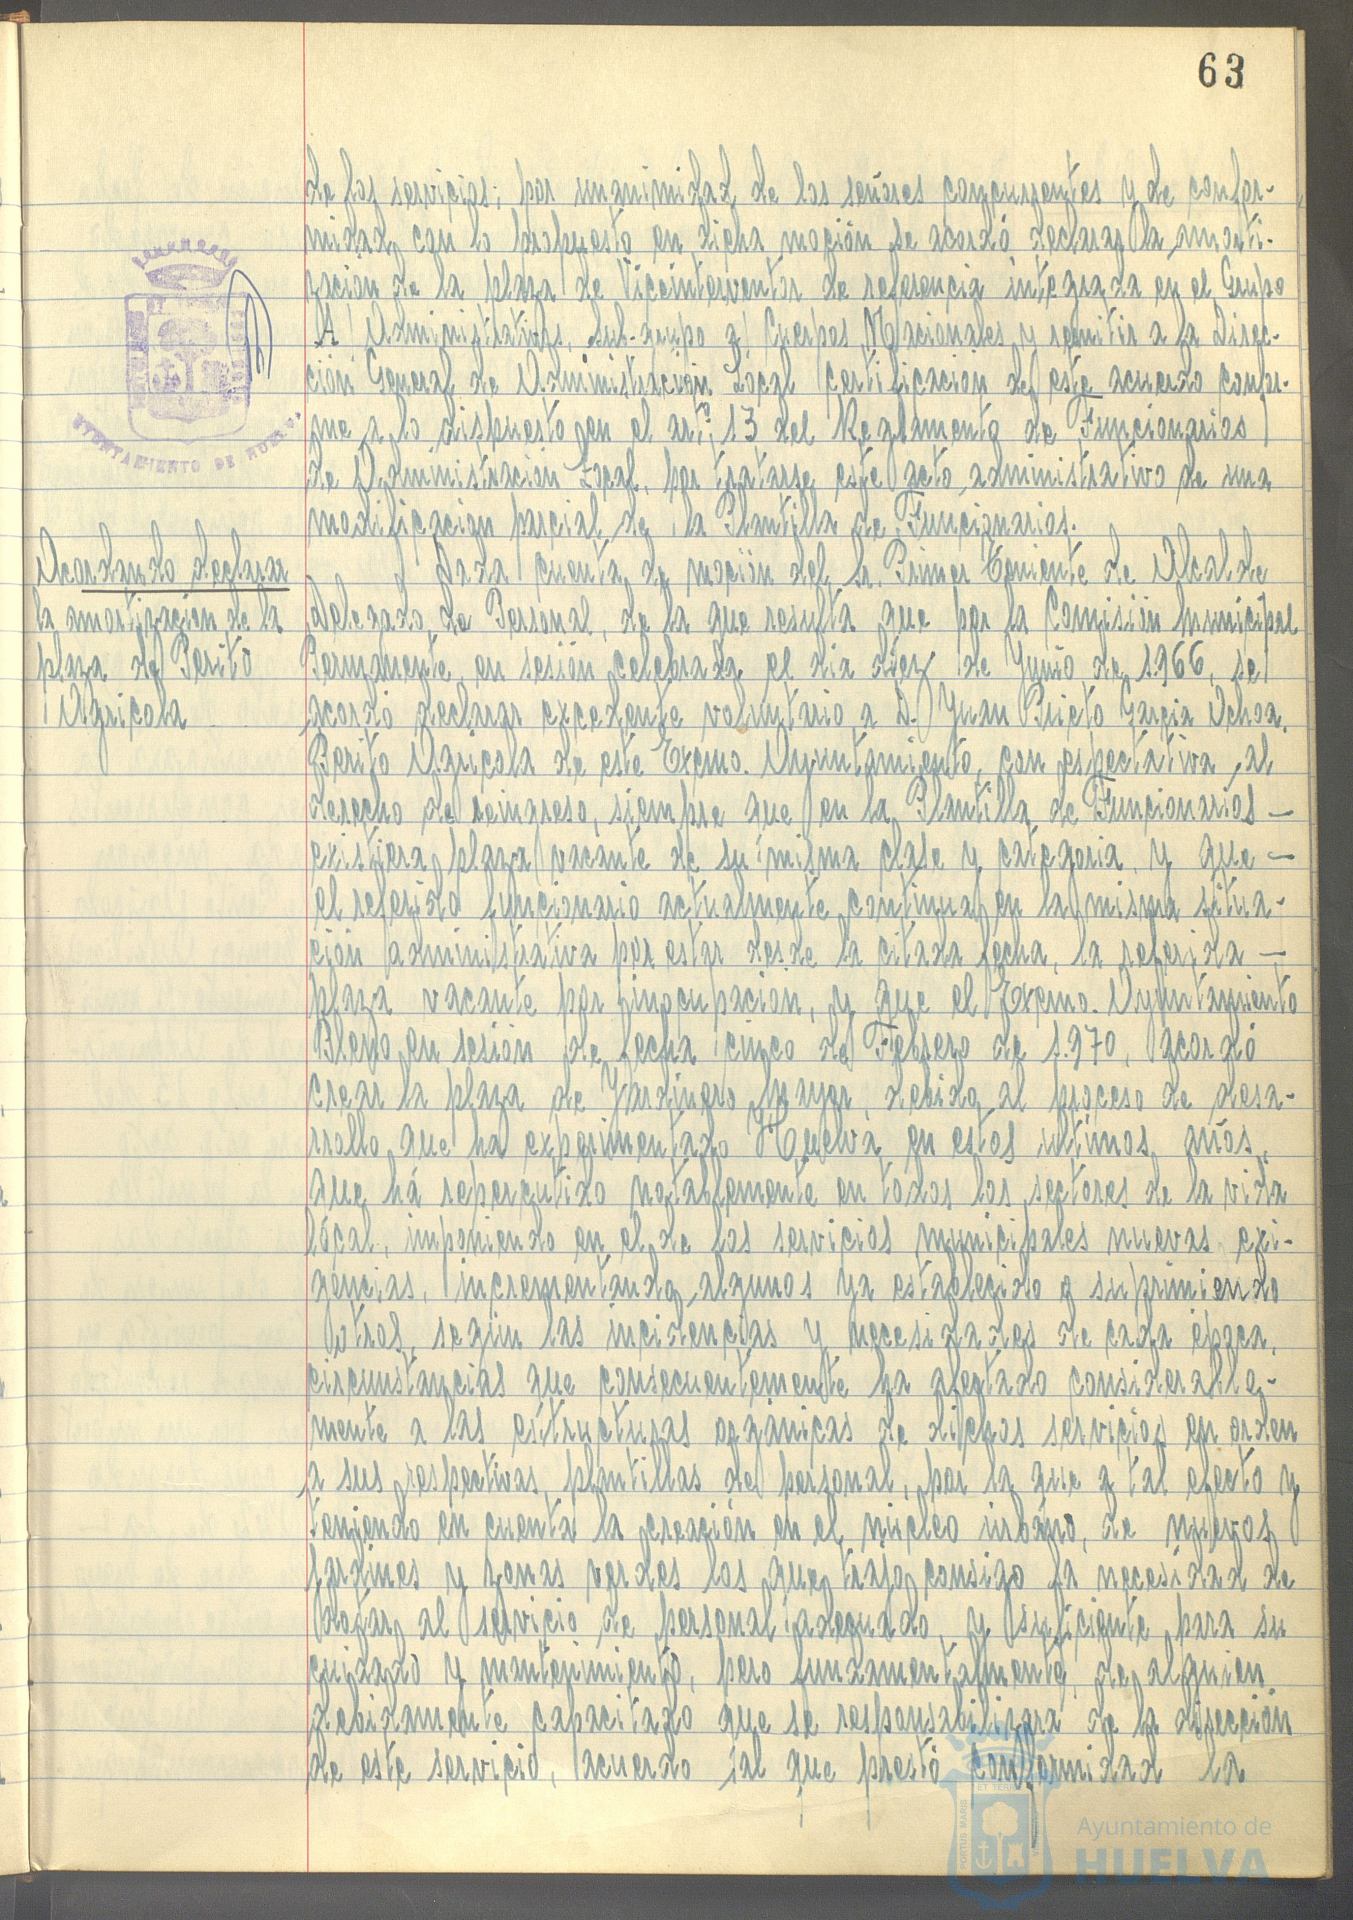 63
de los servicios; por unanimidad de los señores concurrentes y de confor-
midad con lo propuesto en dicha moción se acordó declarar la amorti-
zación de la plaza de Viceinterventor de referencia integrada en el Grupo
A) Administrativos, Sub-grupo a) Cuerpos Nacionales y remitir a la Direc-
ción General de Administración Local certificación de este acuerdo confor-
me a lo dispuesto en el artº 13 del Reglamento de Funcionarios
de Administración Local, por tratarse este acto administrativo de una
modificación parcial de la Plantilla de Funcionarios.
AYUNTAMIENTO DE HUELVA
Acordando declarar
la amortización de la
plaza de Perito
Agrícola
Dada cuenta de moción del Sr. Primer Teniente de Alcalde
Delegado de Personal, de la que resulta que por la Comisión Municipal
Permanente, en sesión celebrada el día diez de Junio de 1.966, se
acordó declarar excedente voluntario a D. Juan Prieto García Ochoa,
Perito Agrícola de este Excmo. Ayuntamiento, con espectativa al
derecho de reingreso, siempre que en la Plantilla de Funcionarios —
existiera plaza vacante de su misma clase y categoría y que —
el referido funcionario actualmente continua en la misma situa-
ción administrativa por estar desde la citada fecha, la referida —
plaza vacante por inocupación, y que el Excmo. Ayuntamiento
Pleno en sesión de fecha cinco de Febrero de 1.970, acordó
crear la plaza de Jardinero Mayor, debido al proceso de desa-
rrollo que ha experimentado Huelva en estos ultimos años,
que há repercutido notablemente en todos los sectores de la vida
lócal, imponiendo en el de los servicios municipales nuevas exi-
gencias, incrementando algunos ya establecido o suprimiendo
otros, según las incidencias y necesidades de cada época,
circunstancias que consecuentemente ha afectado considerable-
mente a las estructuras orgánicas de dichos servicios en orden
a sus respectivas plantillas de personal, por la que a tal efecto y
teniendo en cuenta la creación en el núcleo urbano, de nuevos
jardines y zonas verdes los que trajo consigo la necesidad de
dotar al servicio de personal adecuado y suficiente para su
cuidado y mantenimiento, pero fundamentalmente, de alguien
debidamente capacitado que se responsabilizara de la dirección
de este servicio, acuerdo al que prestó conformidad la
PORTUS MARIS
ET TERRAE
Ayuntamiento de
HUELVA